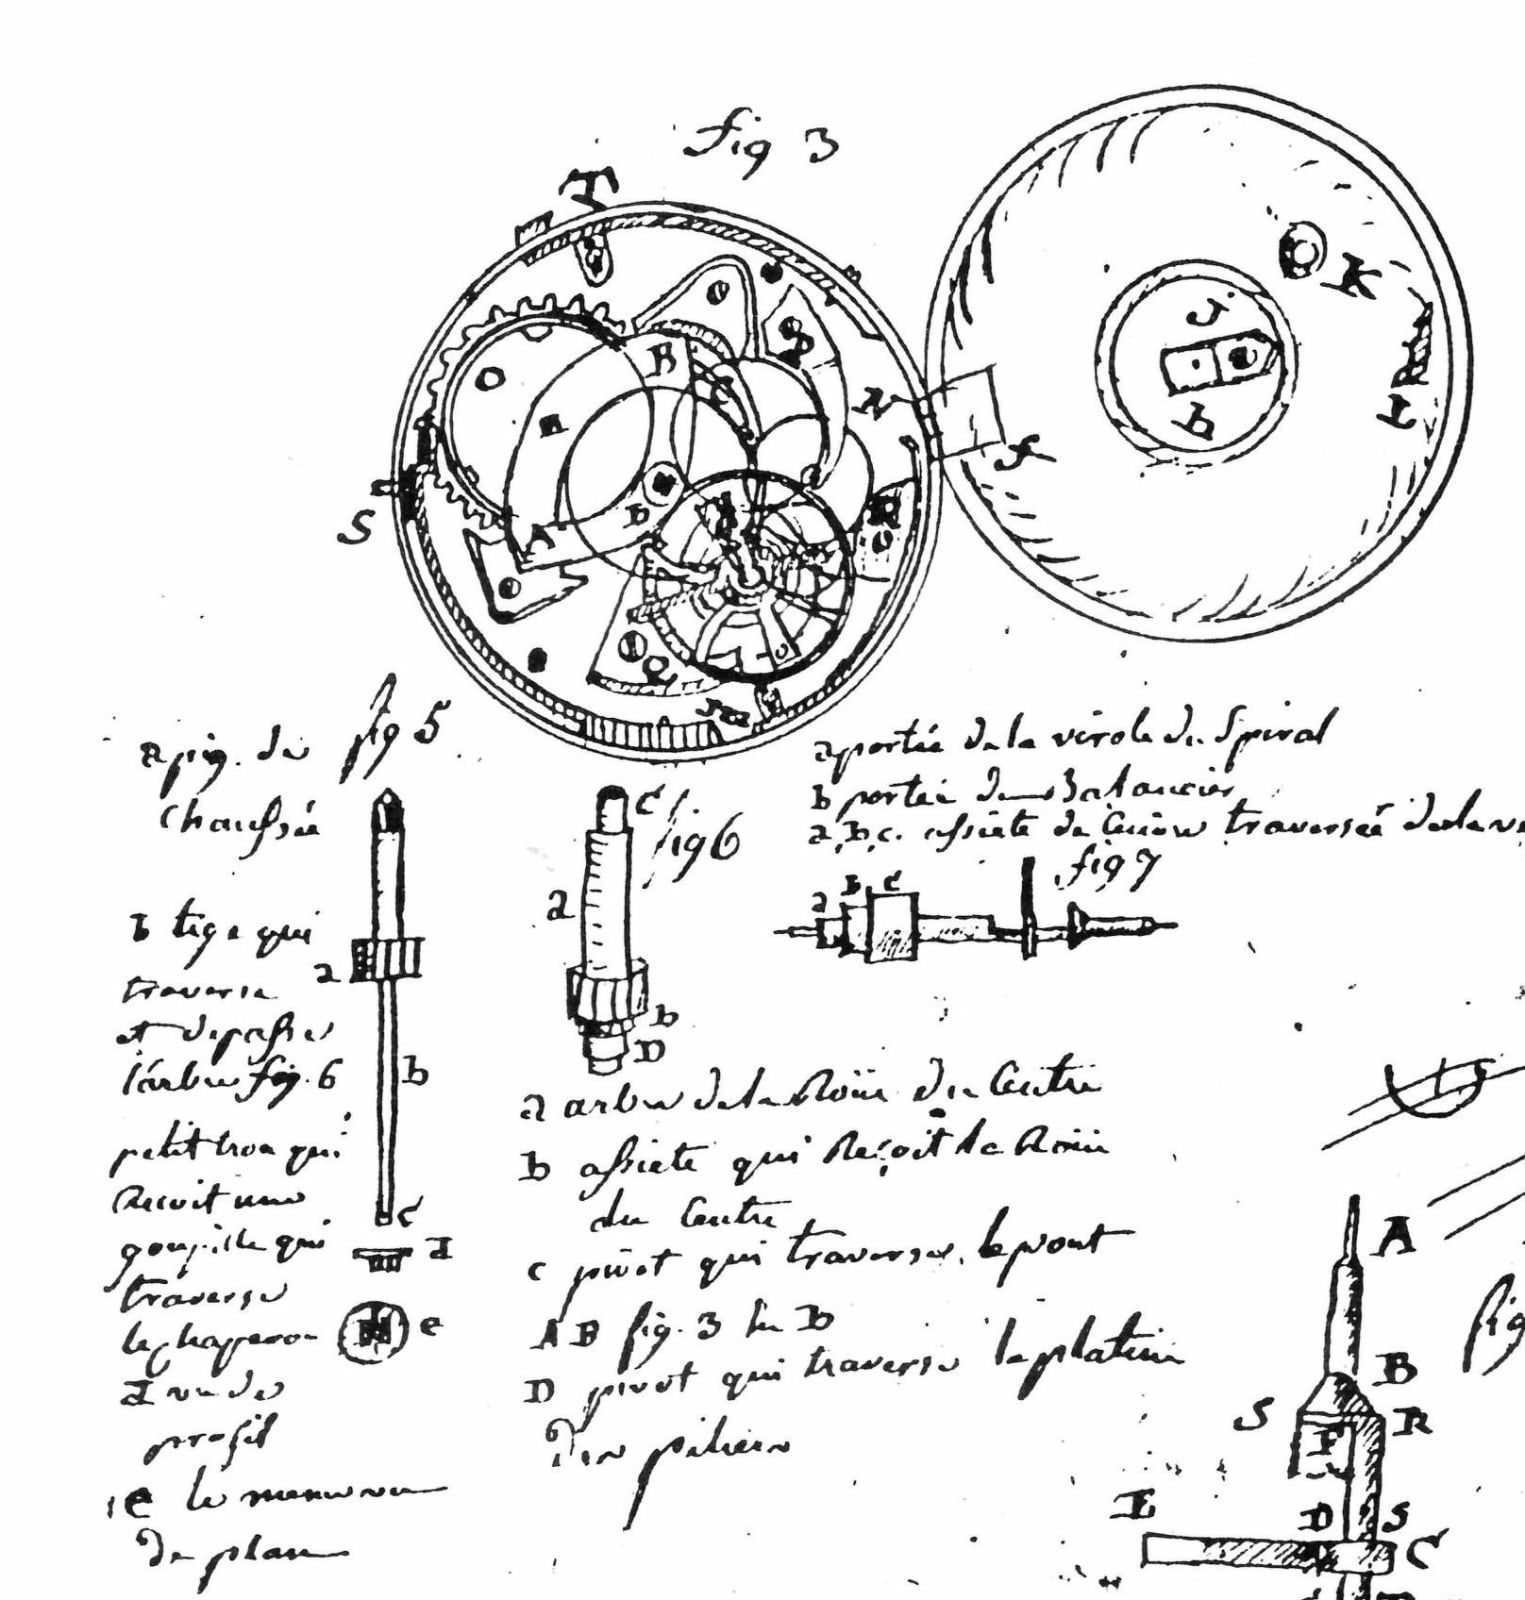 fig 3
T
K
J
b
L
N
f
O
B
P
S
A
b
R
Q
fig 5
a pig. de
chaussée
b tige qui
traverse
et depasse
l'arbre fig. 6
petit trou qui
reçoit une
goupille qui
traverse
le chaperon
d vu de
profil
e le meme vu
de plan
a
b
c
d
e
fig 6
c
a
b
D
a arbre de la Roüe du Centre
b assiete qui Reçoit la Roüe
du Centre
c pivot qui traverse le pont
A B fig. 3 en B
D pivot qui traverse la platine
des piliers
a portée de la virole du Spiral
b portée du Balancier
a, b, c. assiete de Cuivre traversée de la
fig 7
a
b
c
A
B
S
R
F
fig
E
D
S
C